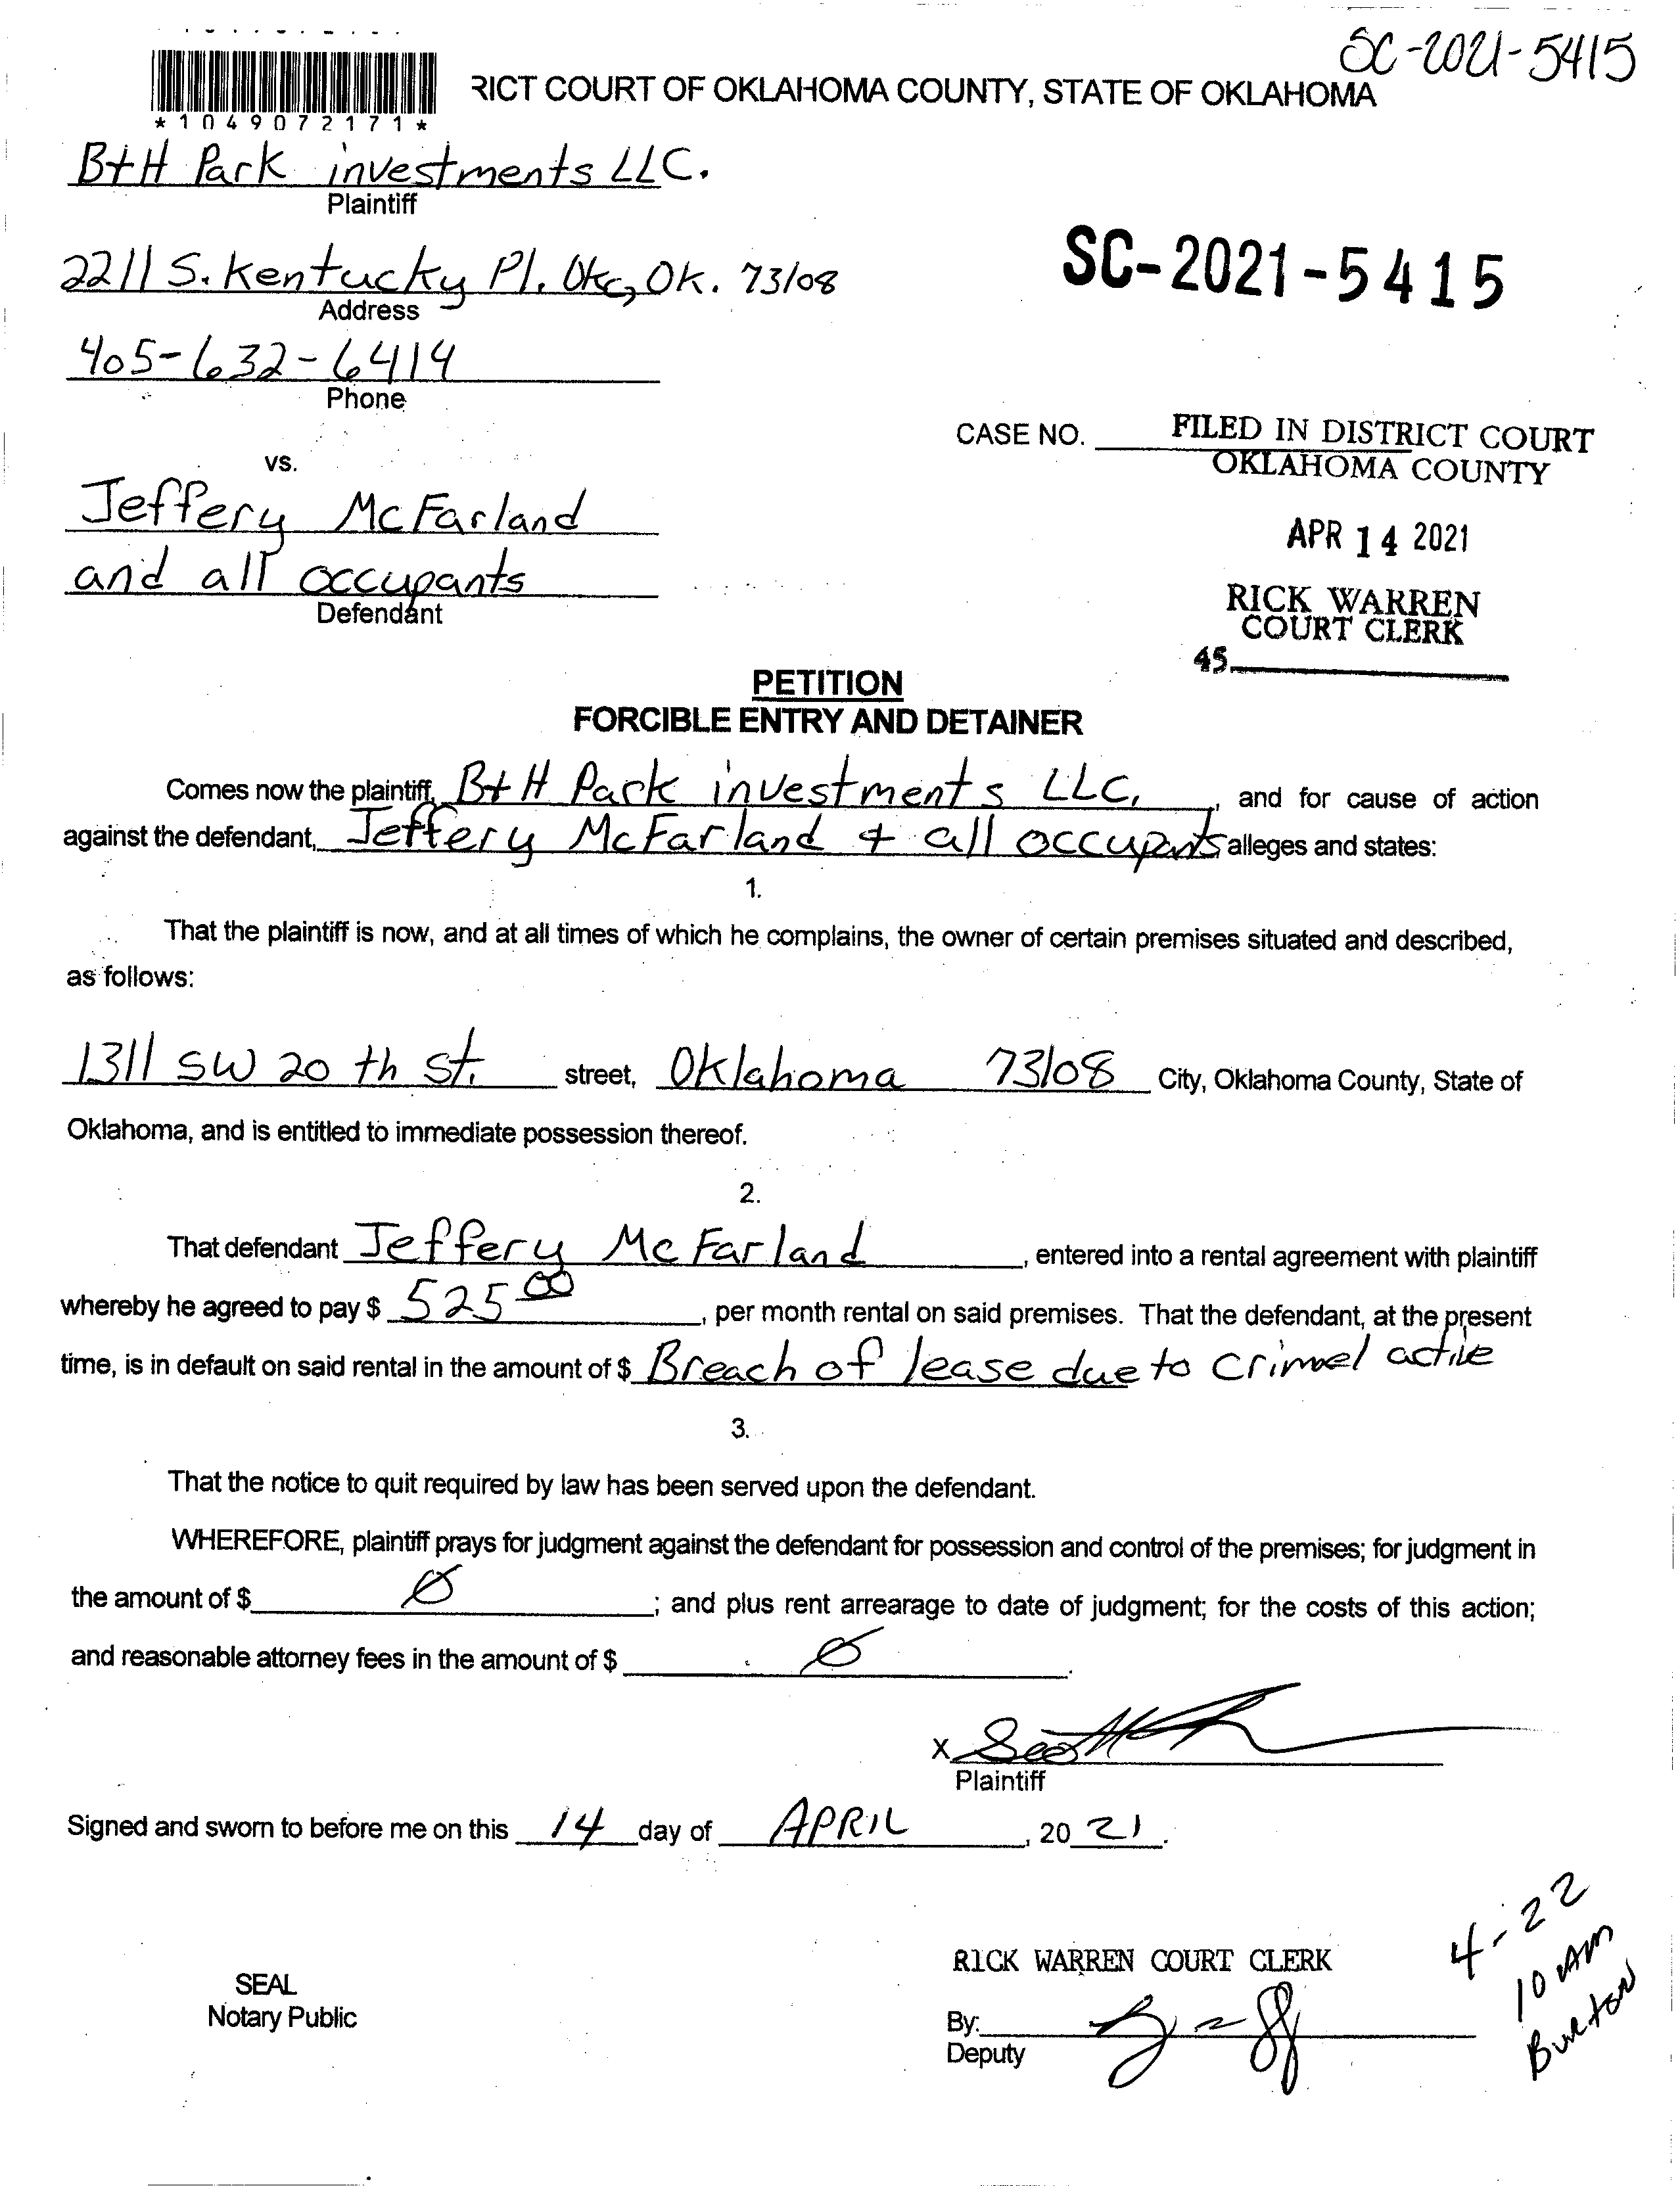 SC-2021-5415
RICT COURT OF OKLAHOMA COUNTY, STATE OF OKLAHOMA
*1049072171*
B+H Park investments LLC.
Plaintiff
2211 S. Kentucky Pl. Okc, OK. 73108
Address
SC-2021-5415
405-632-6414
Phone
CASE NO.
FILED IN DISTRICT COURT
OKLAHOMA COUNTY
vs.
Jeffery McFarland
APR 14 2021
and all occupants
Defendant
RICK WARREN
COURT CLERK
45
PETITION
FORCIBLE ENTRY AND DETAINER
Comes now the plaintiff, B+H Park investments LLC, , and for cause of action
against the defendant, Jeffery McFarland + all occupants alleges and states:
1.
That the plaintiff is now, and at all times of which he complains, the owner of certain premises situated and described,
as follows:
1311 SW 20 th St. street, Oklahoma 73108 City, Oklahoma County, State of
Oklahoma, and is entitled to immediate possession thereof.
2.
That defendant Jeffery McFarland , entered into a rental agreement with plaintiff
whereby he agreed to pay $ 525 00 , per month rental on said premises. That the defendant, at the present
time, is in default on said rental in the amount of $ Breach of lease due to crimel active
3.
That the notice to quit required by law has been served upon the defendant.
WHEREFORE, plaintiff prays for judgment against the defendant for possession and control of the premises; for judgment in
the amount of $ Ø ; and plus rent arrearage to date of judgment; for the costs of this action;
and reasonable attorney fees in the amount of $ Ø .
X Scott
Plaintiff
Signed and sworn to before me on this 14 day of APRIL , 20 21 .
4-22
10 AM
Burton
RICK WARREN COURT CLERK
SEAL
Notary Public
By:
Deputy